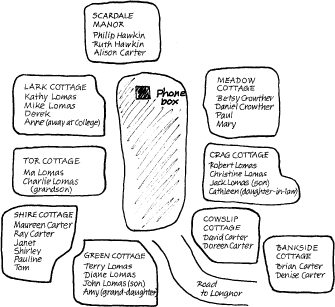 SCARDALE
MANOR
Philip Hawkin
Ruth Hawkin
Alison Carter
LARK COTTAGE
Kathy Lomas
Mike Lomas
Derek
Anne (away at College)
Phone
box
MEADOW
COTTAGE
Betsy Crowther
Daniel Crowther
Paul
Mary
TOR COTTAGE
Ma Lomas
Charlie Lomas
(grandson)
CRAG COTTAGE
Robert Lomas
Christine Lomas
Jack Lomas (son)
Cathleen (daughter-in-law)
SHIRE COTTAGE
Maureen Carter
Ray Carter
Janet
Shirley
Pauline
Tom
GREEN COTTAGE
Terry Lomas
Diane Lomas
John Lomas (son)
Amy (grand-daughter)
COWSLIP
COTTAGE
David Carter
Doreen Carter
BANKSIDE
COTTAGE
Brian Carter
Denise Carter
Road
to Longnor